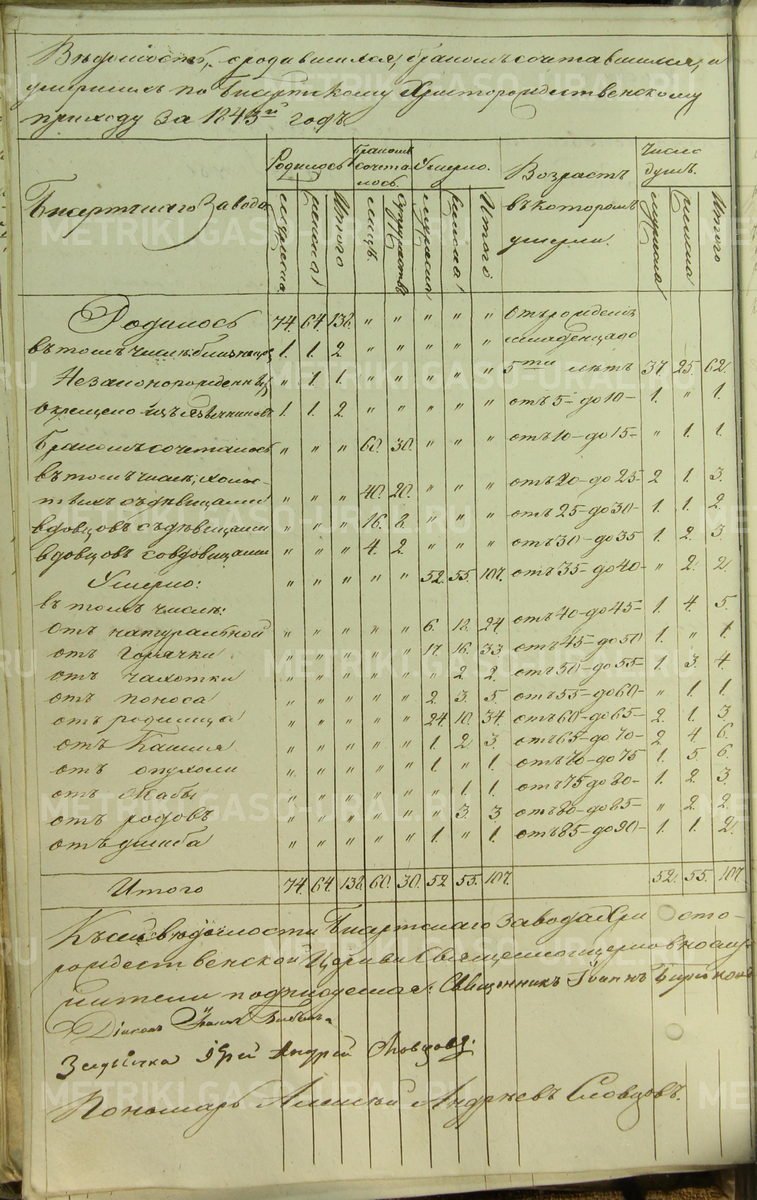 Вѣдомость, о родившихся, бракомъ сочетавшихся, и
умершихъ по Бисертскому Христорождественскому
приходу за 1843й годъ.
Бисертскаго Завода
Родилось
мужеска
женска
Итого
Бракомъ сочеталось.
лицъ.
супружествъ
Умерло.
мужеска
женска
Итого
Возрастъ
въ которомъ
умерли.
Число душъ.
мужеска
женска
Итого
Родилось 74. 64. 138. " " " " " отъ рожденія
младенцевъ
въ томъ числѣ близнецовъ 1. 1. 2. " " " " " 5ти лѣтъ 37 25. 62.
Незаконорожденныхъ " 1. 1. " " " " " отъ 5 до 10 1. " 1.
окрещено изъ 1. 1. 2. " " " " "
Бракомъ сочеталось " " " 60. 30. " " " отъ 10 до 15 " 1. 1.
въ томъ числѣ; холос-
тыхъ съ дѣвицами " " " 40. 20. " " " отъ 20 до 25 2 1. 3.
вдовцовъ съ дѣвицами " " " 16. 8. " " " отъ 25 до 30 1. 1. 2.
вдовцовъ со вдовицами " " " 4. 2. " " " отъ 30 до 35 1. 2. 3.
Умерло: " " " " " 52. 55. 107. отъ 35 до 40 " 2. 2.
въ томъ числѣ:
отъ натуральной " " " " " 6. 18. 24. отъ 40 до 45 1. 4. 5.
отъ Горячки " " " " " 17. 16. 33. отъ 45 до 50 1. " 1.
отъ чахотки " " " " " " 2. 2. отъ 50 до 55 1. 3. 4
отъ поноса " " " " " 2. 3. 5 отъ 55 до 60 " 1. 1
отъ родимца " " " " " 24. 10. 34. отъ 60 до 65 2. 1. 3
отъ Кашля " " " " " 1. 2. 3. отъ 65 до 70 2. 4 6.
отъ опухоли " " " " " 1. " 1. отъ 70 до 75 1. 5. 6.
отъ Жабы " " " " " " 1. 1. отъ 75 до 80 1. 2. 3
отъ родовъ " " " " " " 3. 3. отъ 80 до 85 " 2. 2.
отъ ушиба " " " " " 1. " 1. отъ 85 до 90 1. 1. 2.
Итого 74. 64. 138. 60. 30. 52. 55. 107. 52. 55. 107
Къ сей вѣдомости Бисертскаго Завода Христо-
рождественской Церкви Священноцерковнослу-
жители подписуемся: Священникъ Іоаннъ
Діаконъ Іоаннъ
Андрей Словцовъ.
Пономарь Алексѣй Андреевъ Словцовъ.
METRIKI.GASO-URAL.RU